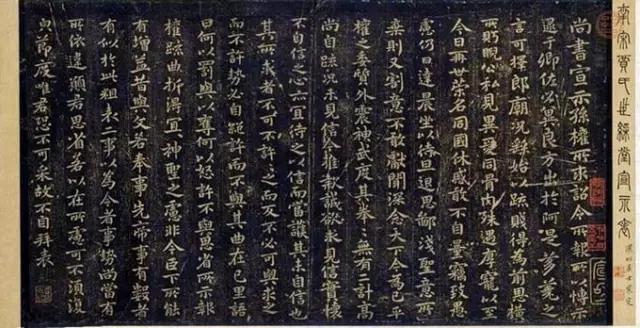 南宋賈氏世綵堂宣示表
尚書宣示孫權所求詔令所報所以博示
逮于卿佐必冀良方出於阿是芻蕘之
言可擇郎廟況繇始以疏賤得為前恩橫
所盼睨公私見異愛同骨肉殊遇厚寵以至
今日再世榮名同國休慼敢不自量竊致愚
慮仍日達晨坐以待旦退思鄙淺聖意所
棄則又割意不敢獻聞深念天下今為已平
權之委質外震神武度其拳々無有二計高
尚自疏況未見信今推款誠欲求見信實懷
不自信之心亦宜待之以信而當護其未自信也
其所求者不可不許許之而反不必可與求之
而不許勢必自絕許而不與其曲在己里語
曰何以罰與以奪何以怒許不與思省所示報
權疏曲折得宜宜神聖之慮非今臣下所能
有增益昔與文若奉事先帝事有數者
有似於此粗表二事以為今者事勢尚當有
所依違願君思省若以在所慮可不須復
皃節度唯君恐不可采故不自拜表